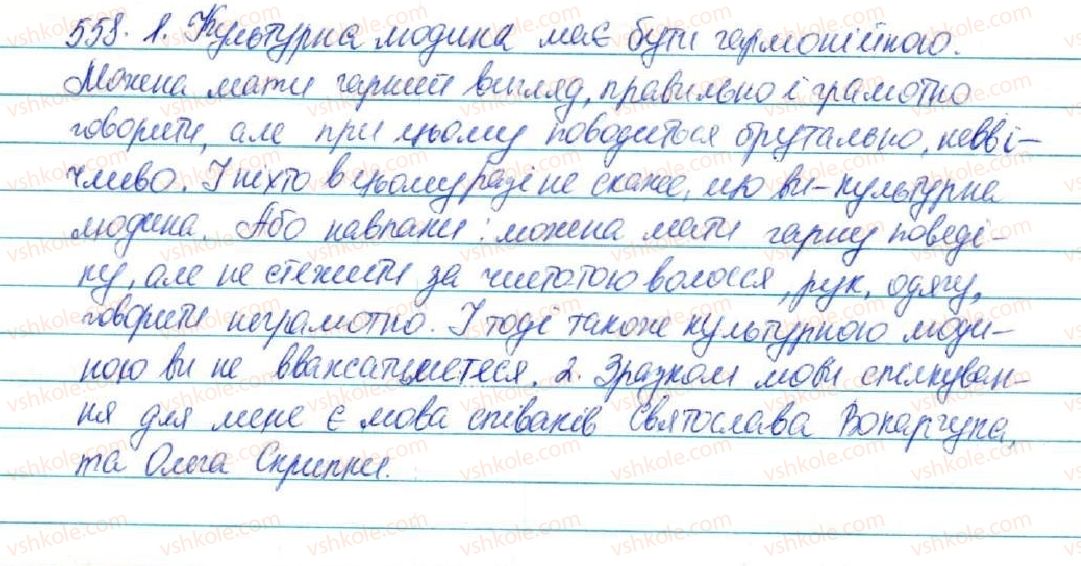 558. 1. Культурна людина має бути гармонійною.
Можна мати гарний вигляд, правильно і грамотно
говорити, але при цьому поводитися брутально, невві-
чливо. І ніхто в цьому разі не скаже, що ви - культурна
людина. Або навпаки: можна мати гарну поведі-
нку, але не стежити за чистотою волосся, рук, одягу,
говорити неграмотно. І тоді також культурною люди-
ною ви не вважатиметеся. 2. Зразком мови спілкуван-
ня для мене є мова співаків Святослава Вакарчука,
та Олега Скрипки.
vshkole.com